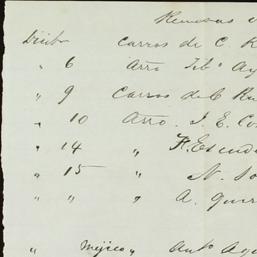 Remesas
Dicbre Carros de C. R
" 6 Arro Tibo Ay
" 9 Carros de C Ru
" 10 Arro. J. E. Co
" 14 " F. Escude
" 15 " N. Lo
" " " A. Guer
" Mejico " Anto Agu